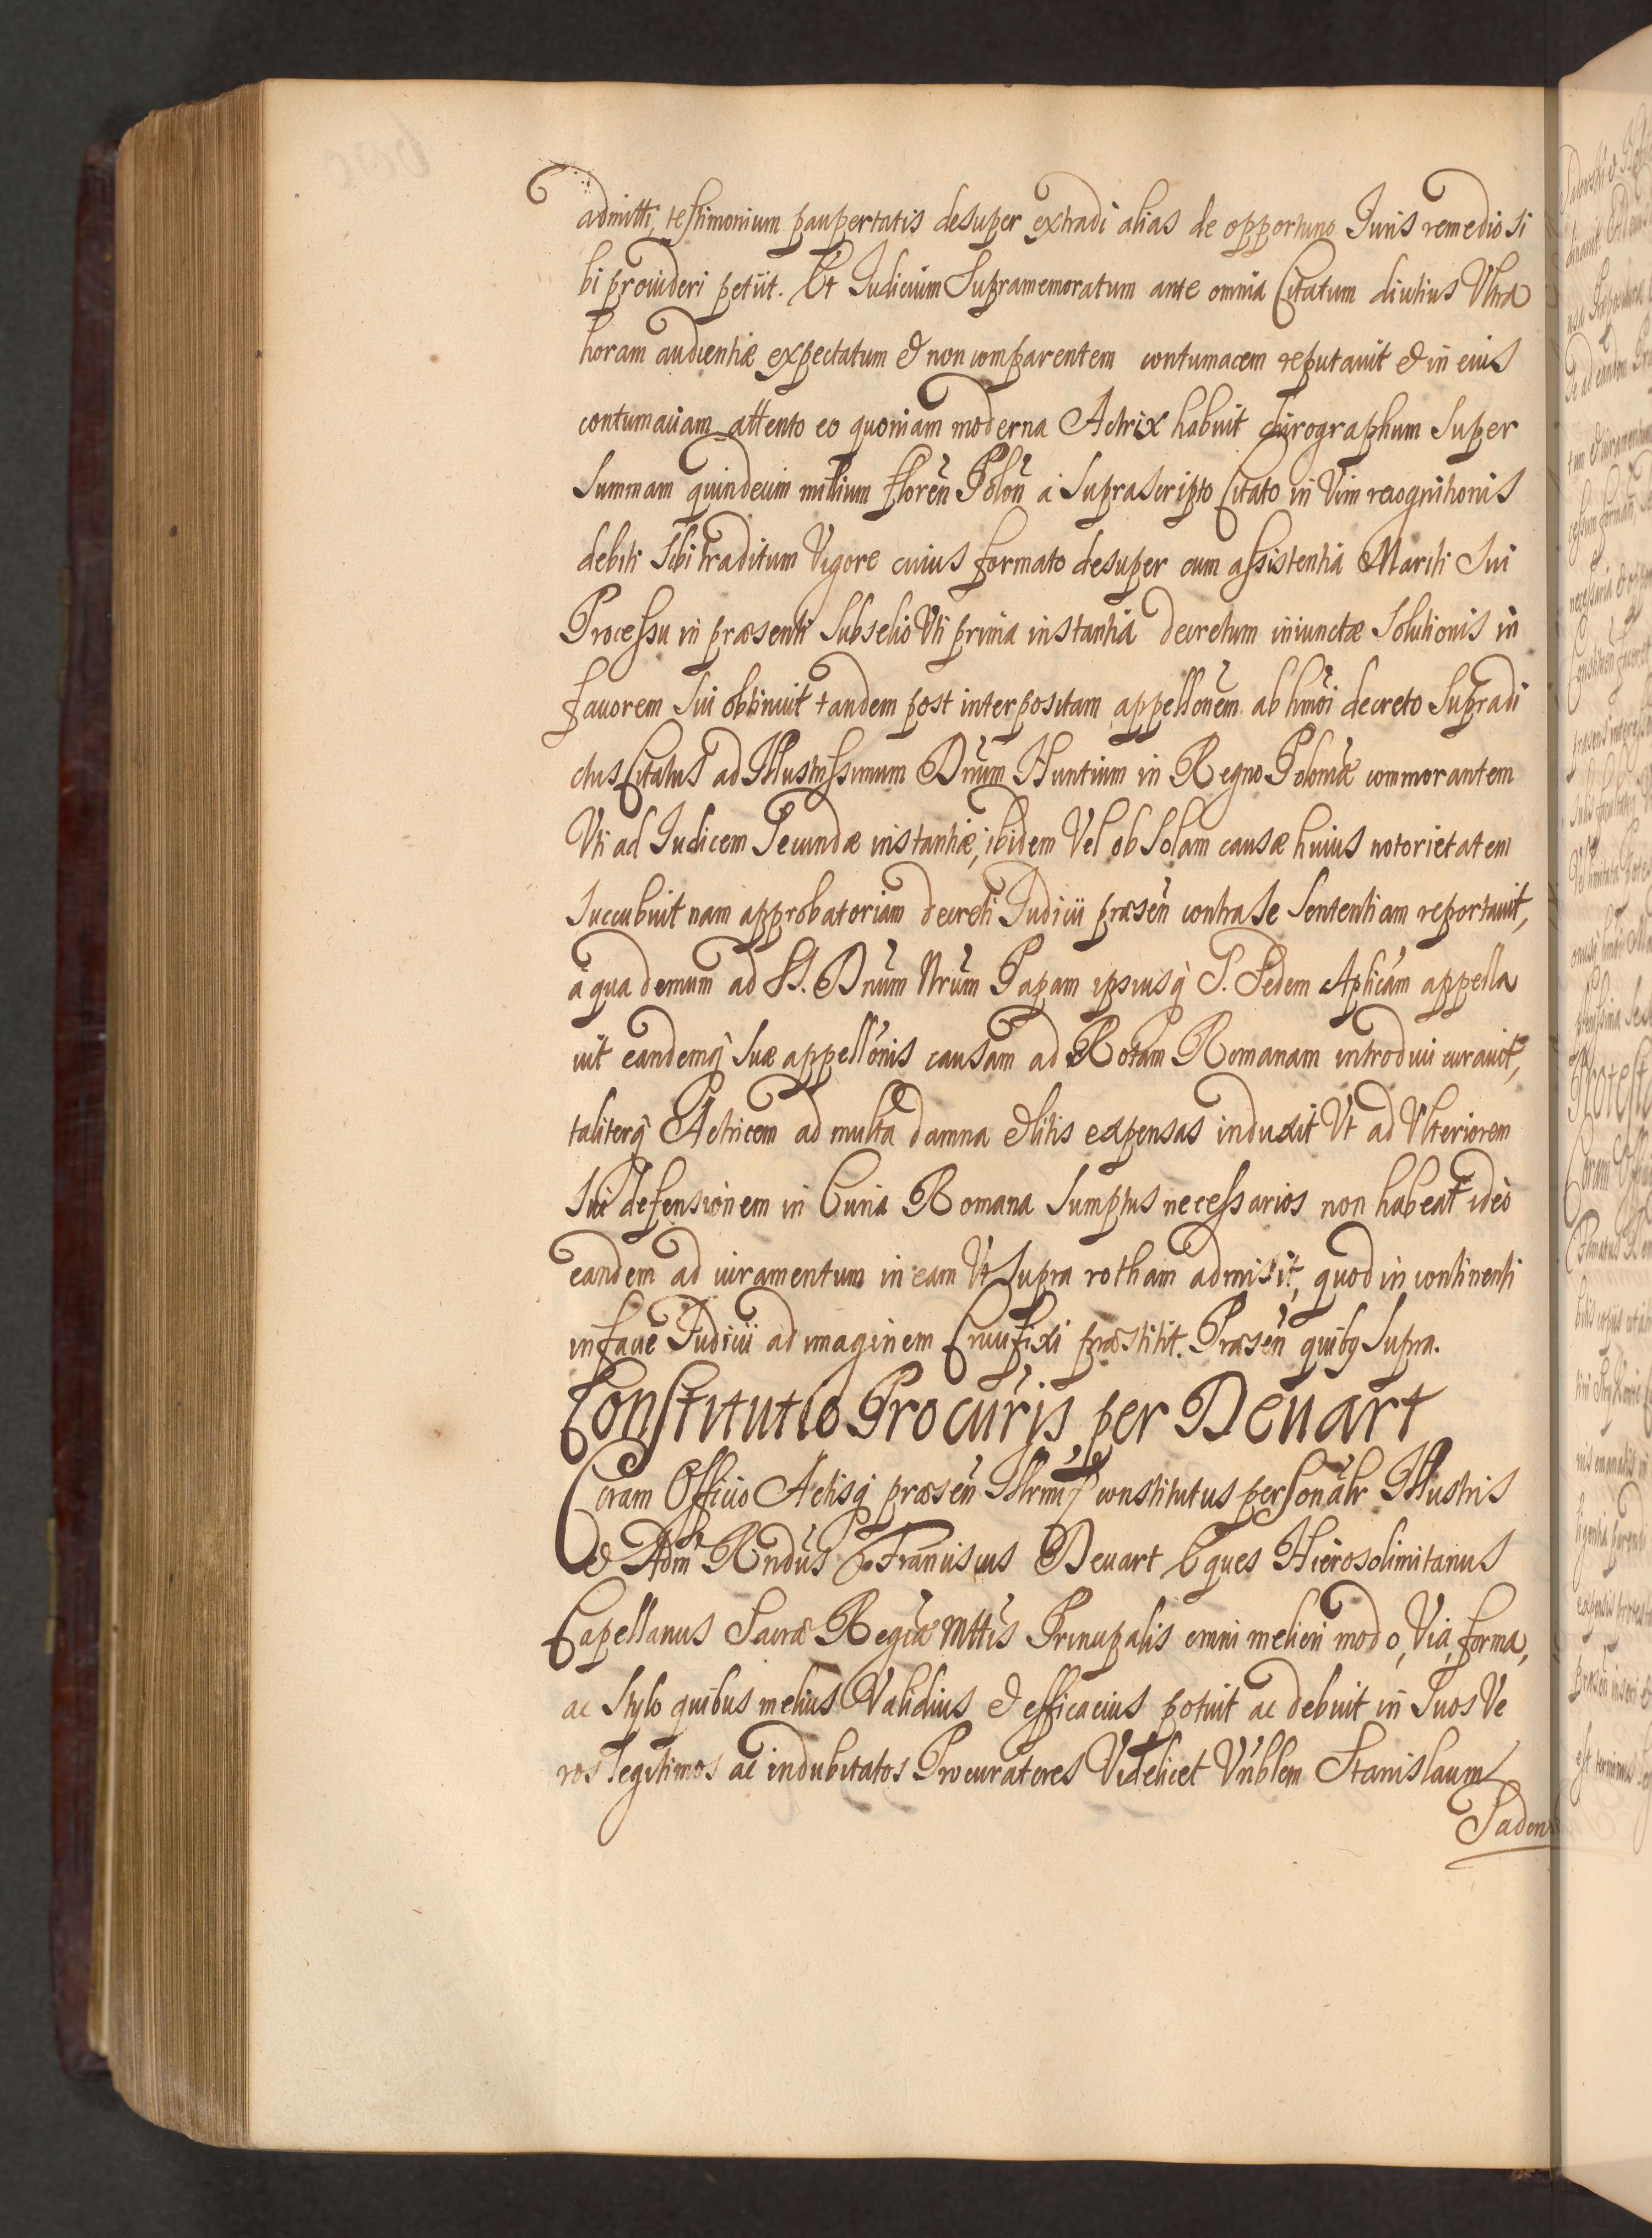 admitti, testimonium paupertatis desuper extradi alias de opportuno Iuris remedio si
bi prouideri petiit. Et Iudicium Supramemoratum ante omnia Citatum diutius Vltra
horam audientiæ expectatum & non comparentem contumacem reputauit & in eius
contumaciam attento eo quoniam moderna Actrix habuit chirographum Super
Summam quindecim millium floren Polon a Suprascripto Citato in Vim recognitionis
debiti Sibi traditum Vigore cuius formato desuper cum assistentia Mariti Sui
Processu in præsenti Subselio Vti prima instantia decretum iniunctæ Solutionis in
fauorem Sui obtinuit tandem post interpositam appellonem ab hmoi decreto Supradi
ctus Citatus ad Illustrissimum Dnum Nuntium in Regno Poloniæ commorantem
Vti ad Iudicem Secundæ instantiæ, ibidem Vel ob Solam causæ huius notorietatem
Succubuit nam approbatoriam decreti Iudicii præsen contra Se Sententiam reportauit,
a qua demum ad SS. Dnum Nrum Papam ipsiusq S. Sedem Aplicam appella
uit eandemq Suæ appellonis causam ad Rotam Romanam introduci curauit,
taliterq Actricem ad multa damna & litis expensas induxit Vt ad Vlteriorem
Sui defensionem in Curia Romana Sumptus necessarios non habeat ideo
eandem ad iuramentum in eam Vt Supra rotham admisit, quod in continenti
in facie Iudicii ad imaginem Crucifixi præstitit. Præsen quibg Supra.
Constitutio Procuris per Deuart
Coram Officio Actisq præsen constitutus personalr Illustris
& Adm Rndus Franciscus Deuart Eques Hierosolimitanus
Capellanus Sacræ Regiæ Mttis Principalis omni meliori modo, Via, forma,
ac Stylo quibus melius Validius & efficacius potuit ac debuit in Suos Ve
ros legitimos ac indubitatos Procuratores Videlicet Vnblem Stanislaum
Saden